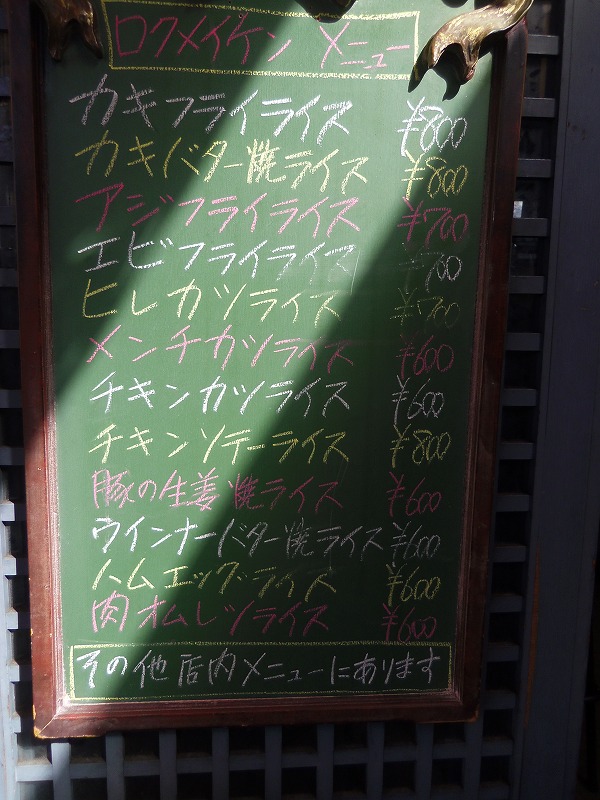 ロクメイケン メニュー
カキフライライス ¥800
カキバター焼ライス ¥800
アジフライライス ¥700
エビフライライス ¥700
ヒレカツライス ¥700
メンチカツライス ¥600
チキンカツライス ¥600
チキンソテーライス ¥800
豚の生姜焼ライス ¥600
ウインナーバター焼ライス ¥600
ハムエッグライス ¥600
肉オムレツライス ¥600
その他店内メニューにあります